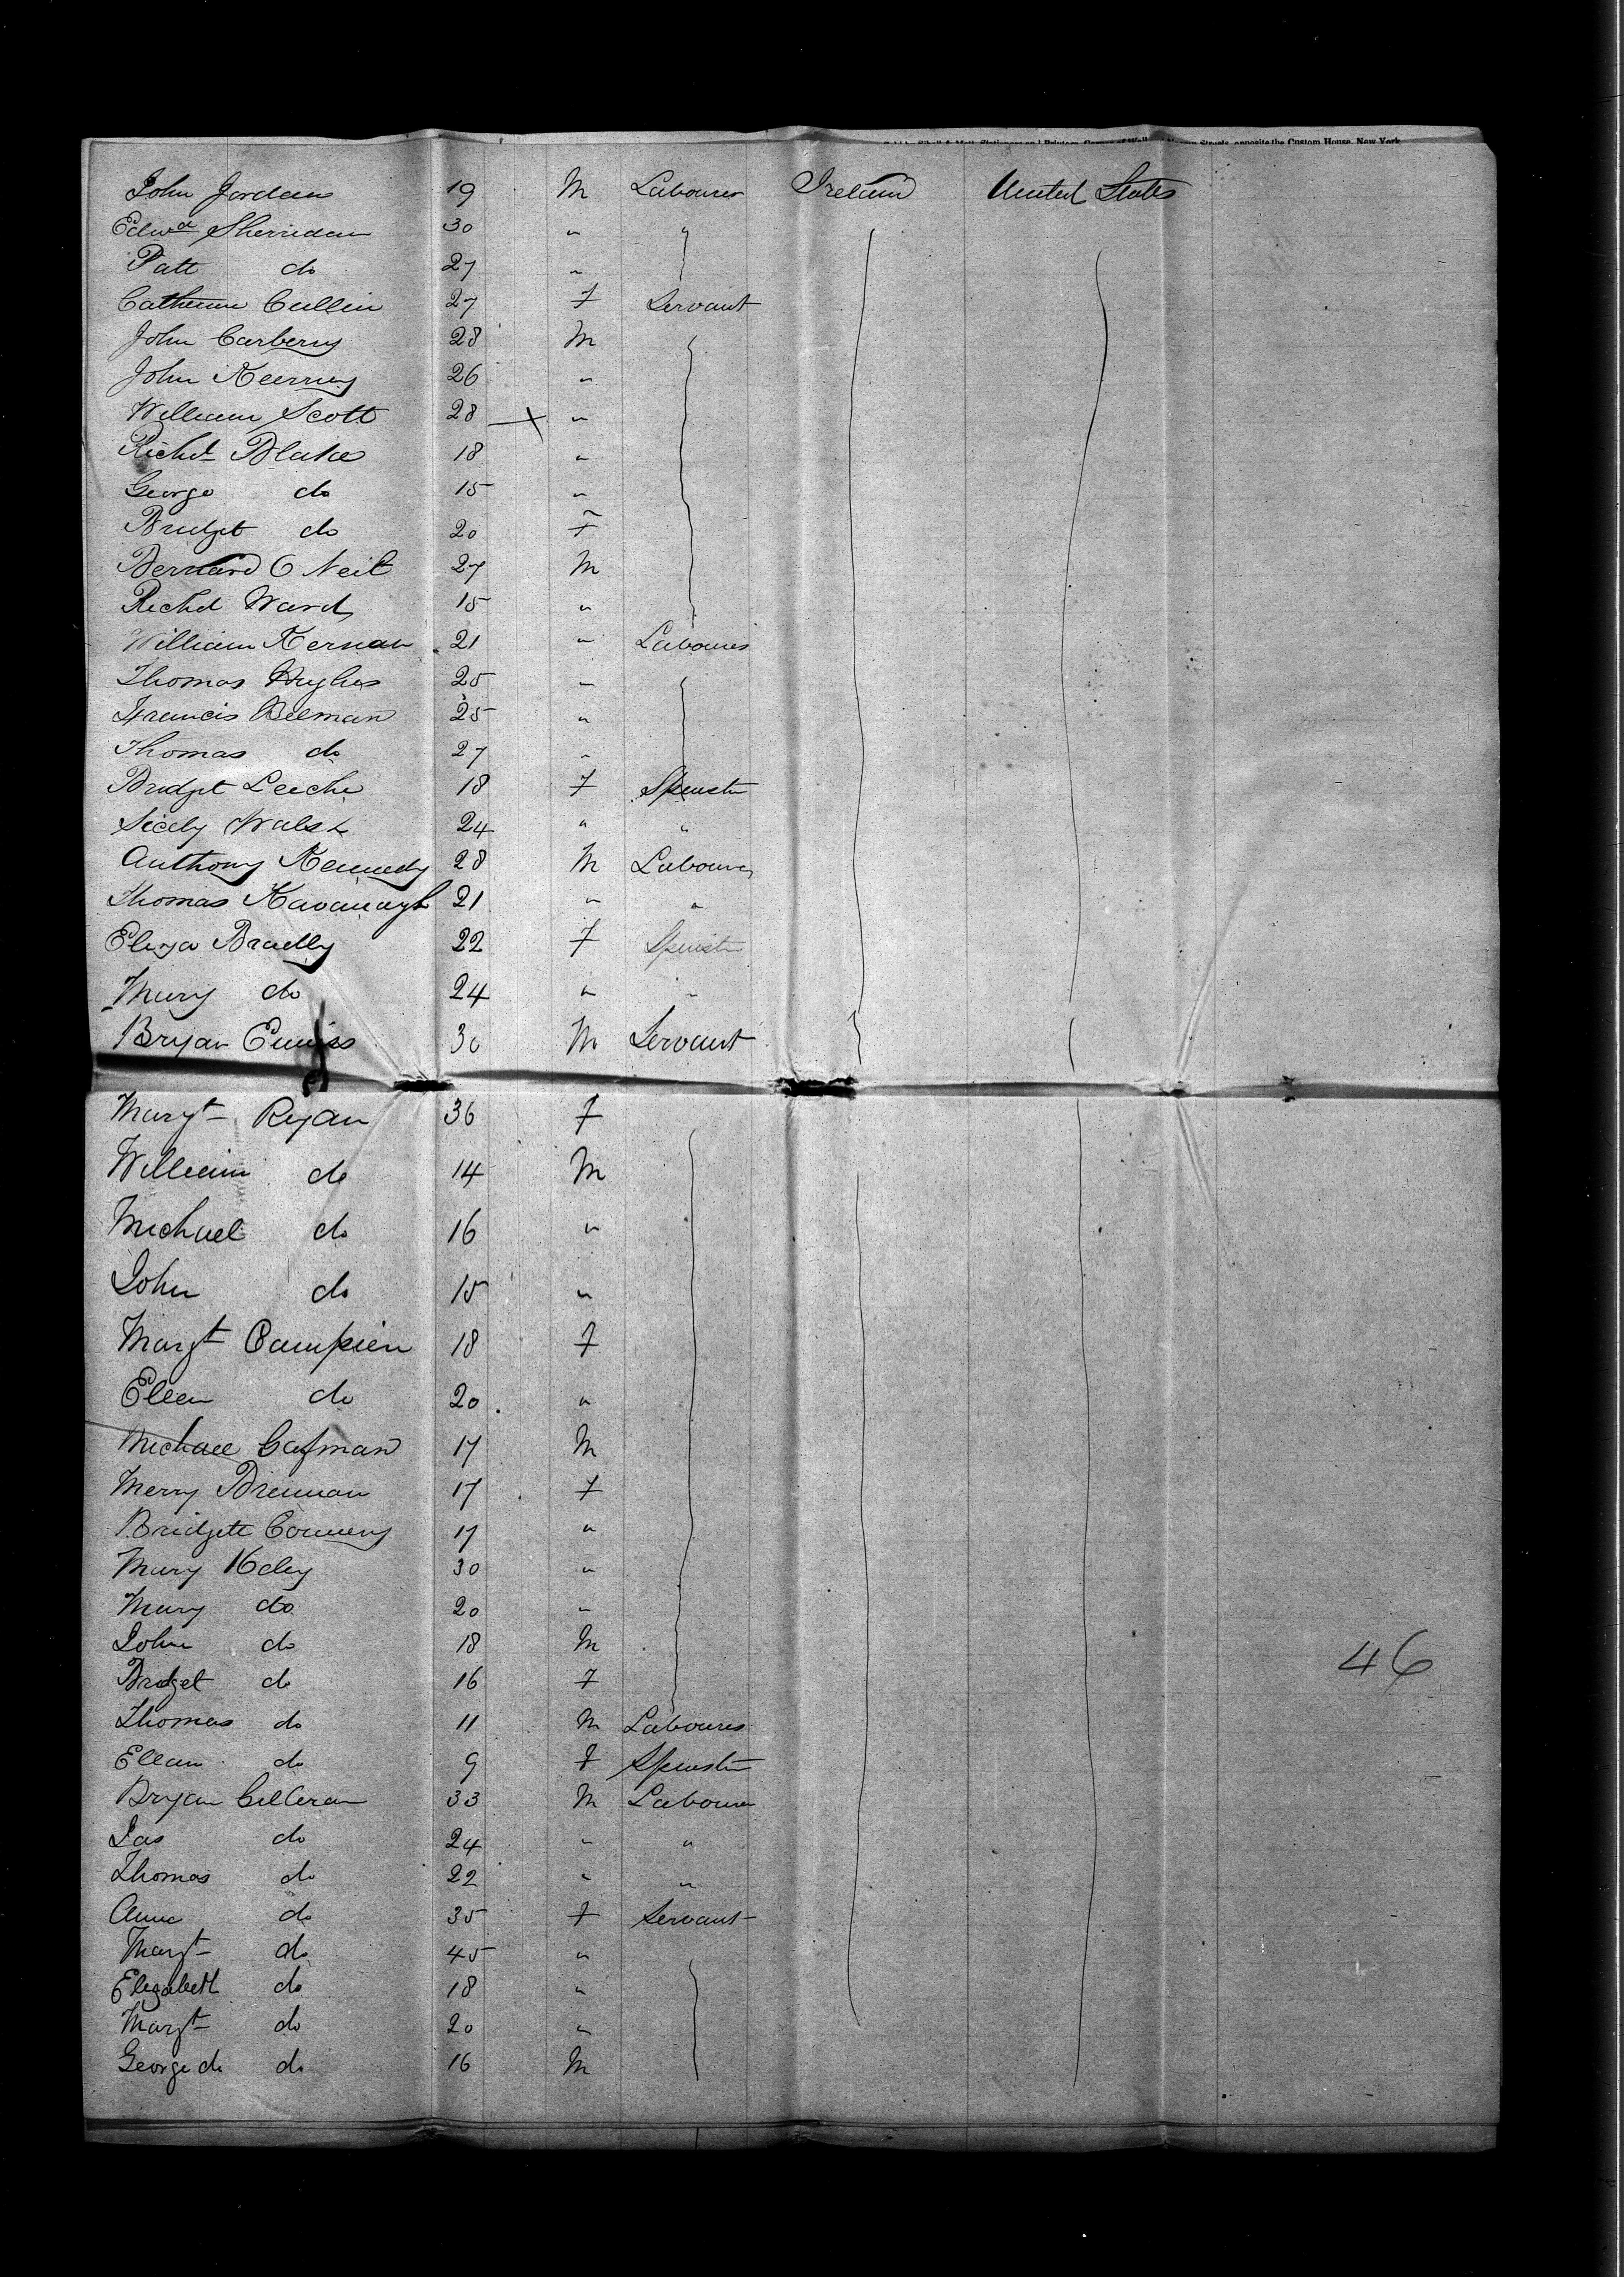 opposite the Custom House, New York
John Jordan 19 M Labourer Ireland United States
Edwd Sherridan 30 " "
Patt do 27 "
Catherine Cullin 27 F Servant
John Carberry 28 M
John Keerney 26 "
William Scott 28 X "
Richd Blake 18 "
George do 15 "
Bridget do 20 F
Bernard O Neil 27 M
Richd Ward 15 "
William Kernan 21 " Labourer
Thomas Hughes 25 "
Francis Beeman 25 "
Thomas do 27 "
Bridget Leeche 18 F Spinster
Sicely Walsh 24 " "
Anthony Kennedy 28 M Labourer
Thomas Kavanagh 21 " "
Eliza Bradly 22 F Spinster
Mary do 24 " "
Bryan 30 M Servant
Margt Ryan 36 F
William do 14 M
Michael do 16 "
John do 15 "
Margt Campien 18 F
Ellen do 20 "
Michael 17 M
Merry Brennan 17 F
Bridgett Connery 17 "
Mary 30 "
Mary do 20 "
John do 18 M
Bridget do 16 F
Thomas do 11 M Labourer
Ellen do 9 F Spinster
Bryan Gilleran 33 M Labourer
Jas do 24 " "
Thomas do 22 " "
Anne do 35 F Servant
Margt do 45 "
Elizabeth do 18 "
Margt do 20 "
George do do 16 M
46